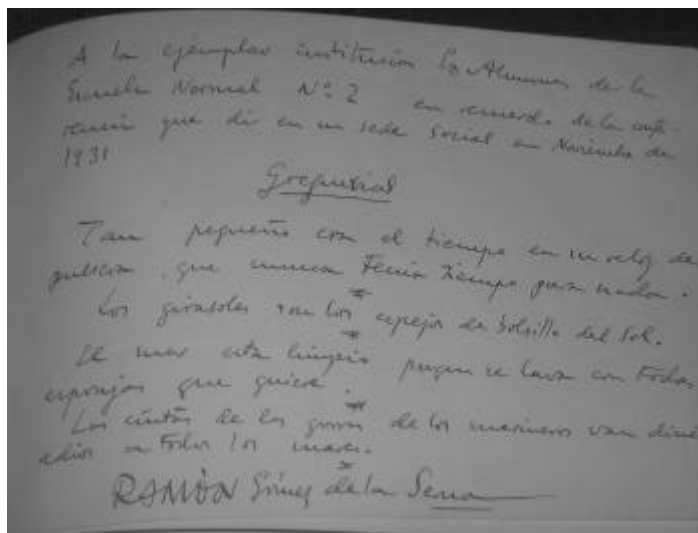 A la ejemplar institución Ex Alumnos de la
Escuela Normal Nº 2 en recuerdo de la confe-
rencia que di en su sede social en Noviembre de
1931
Greguerías
Tan pequeño era el tiempo en su reloj de
pulsera, que nunca tenía tiempo para nada.
Los girasoles son los espejos de bolsillo del Sol.
El mar está limpio porque se lava con todas
esponjas que quiere.
Las cintas de las gorras de los marineros van dicie
adios a todos los mares.
RAMÓN Gómez de la Serna